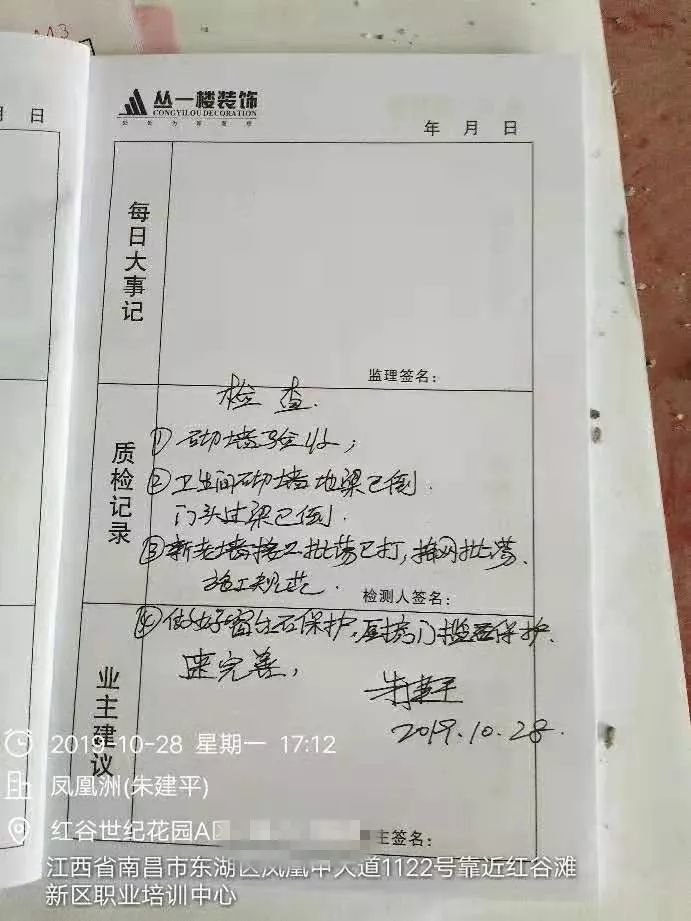 M3
月 日
丛一楼装饰
CONGYILOU DECORATION
年 月 日
每日大事记
监理签名：
检查.
① 砌墙验收；
质检记录
② 卫生间砌墙地梁已倒.
门头过梁已倒.
③ 新老墙接工批荡已打，挂网批荡.
施工规范.
检测人签名：
④ 做好窗台石保护，厨房门槛石保护.
速完善，
业主建议
朱建平
2019.10.28.
2019-10-28 星期一 17:12
凤凰洲(朱建平)
红谷世纪花园A区
主签名：
江西省南昌市东湖区凤凰中大道1122号靠近红谷滩
新区职业培训中心